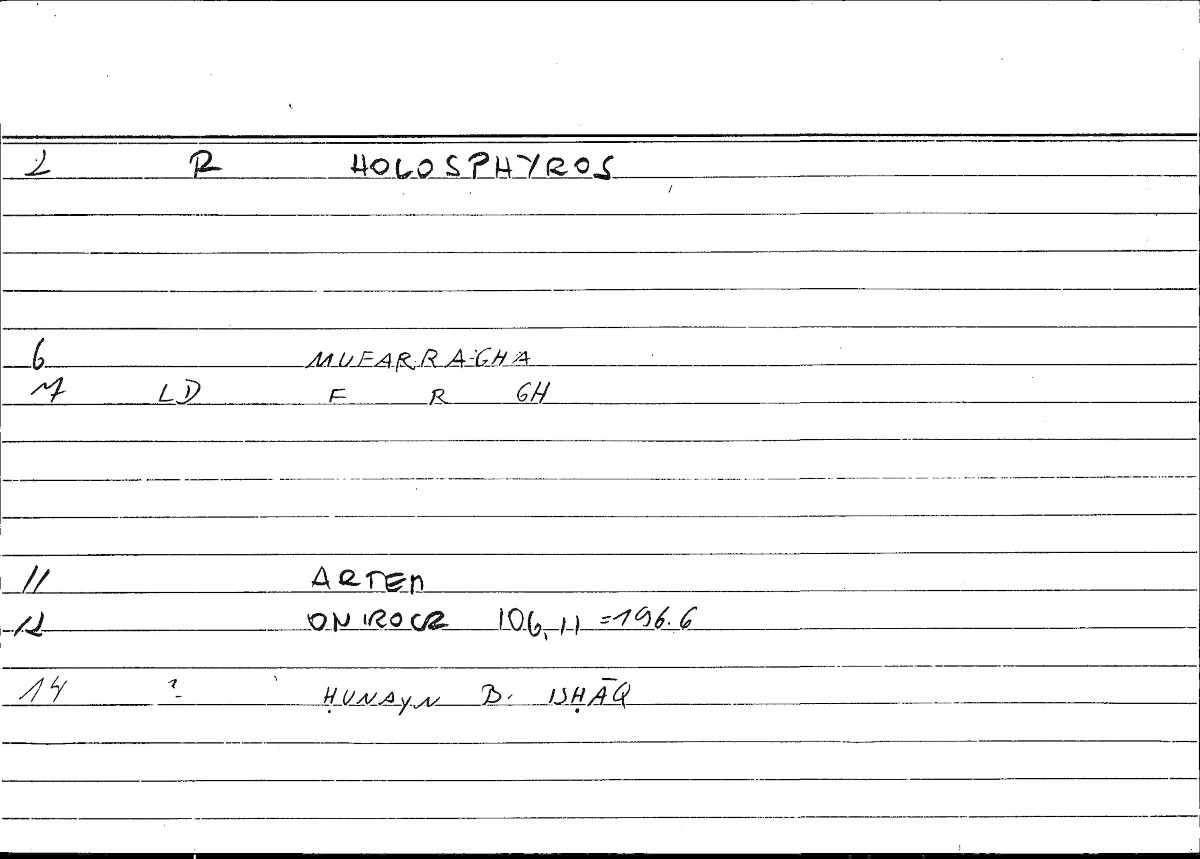 2 R HOLOSPHYROS
6 MUFARRAGHA
7 LD F R GH
11 ARTEM
12 ONIROCR 106,11 =196.6
14 ? ḤUNAYN B. ISḤĀQ